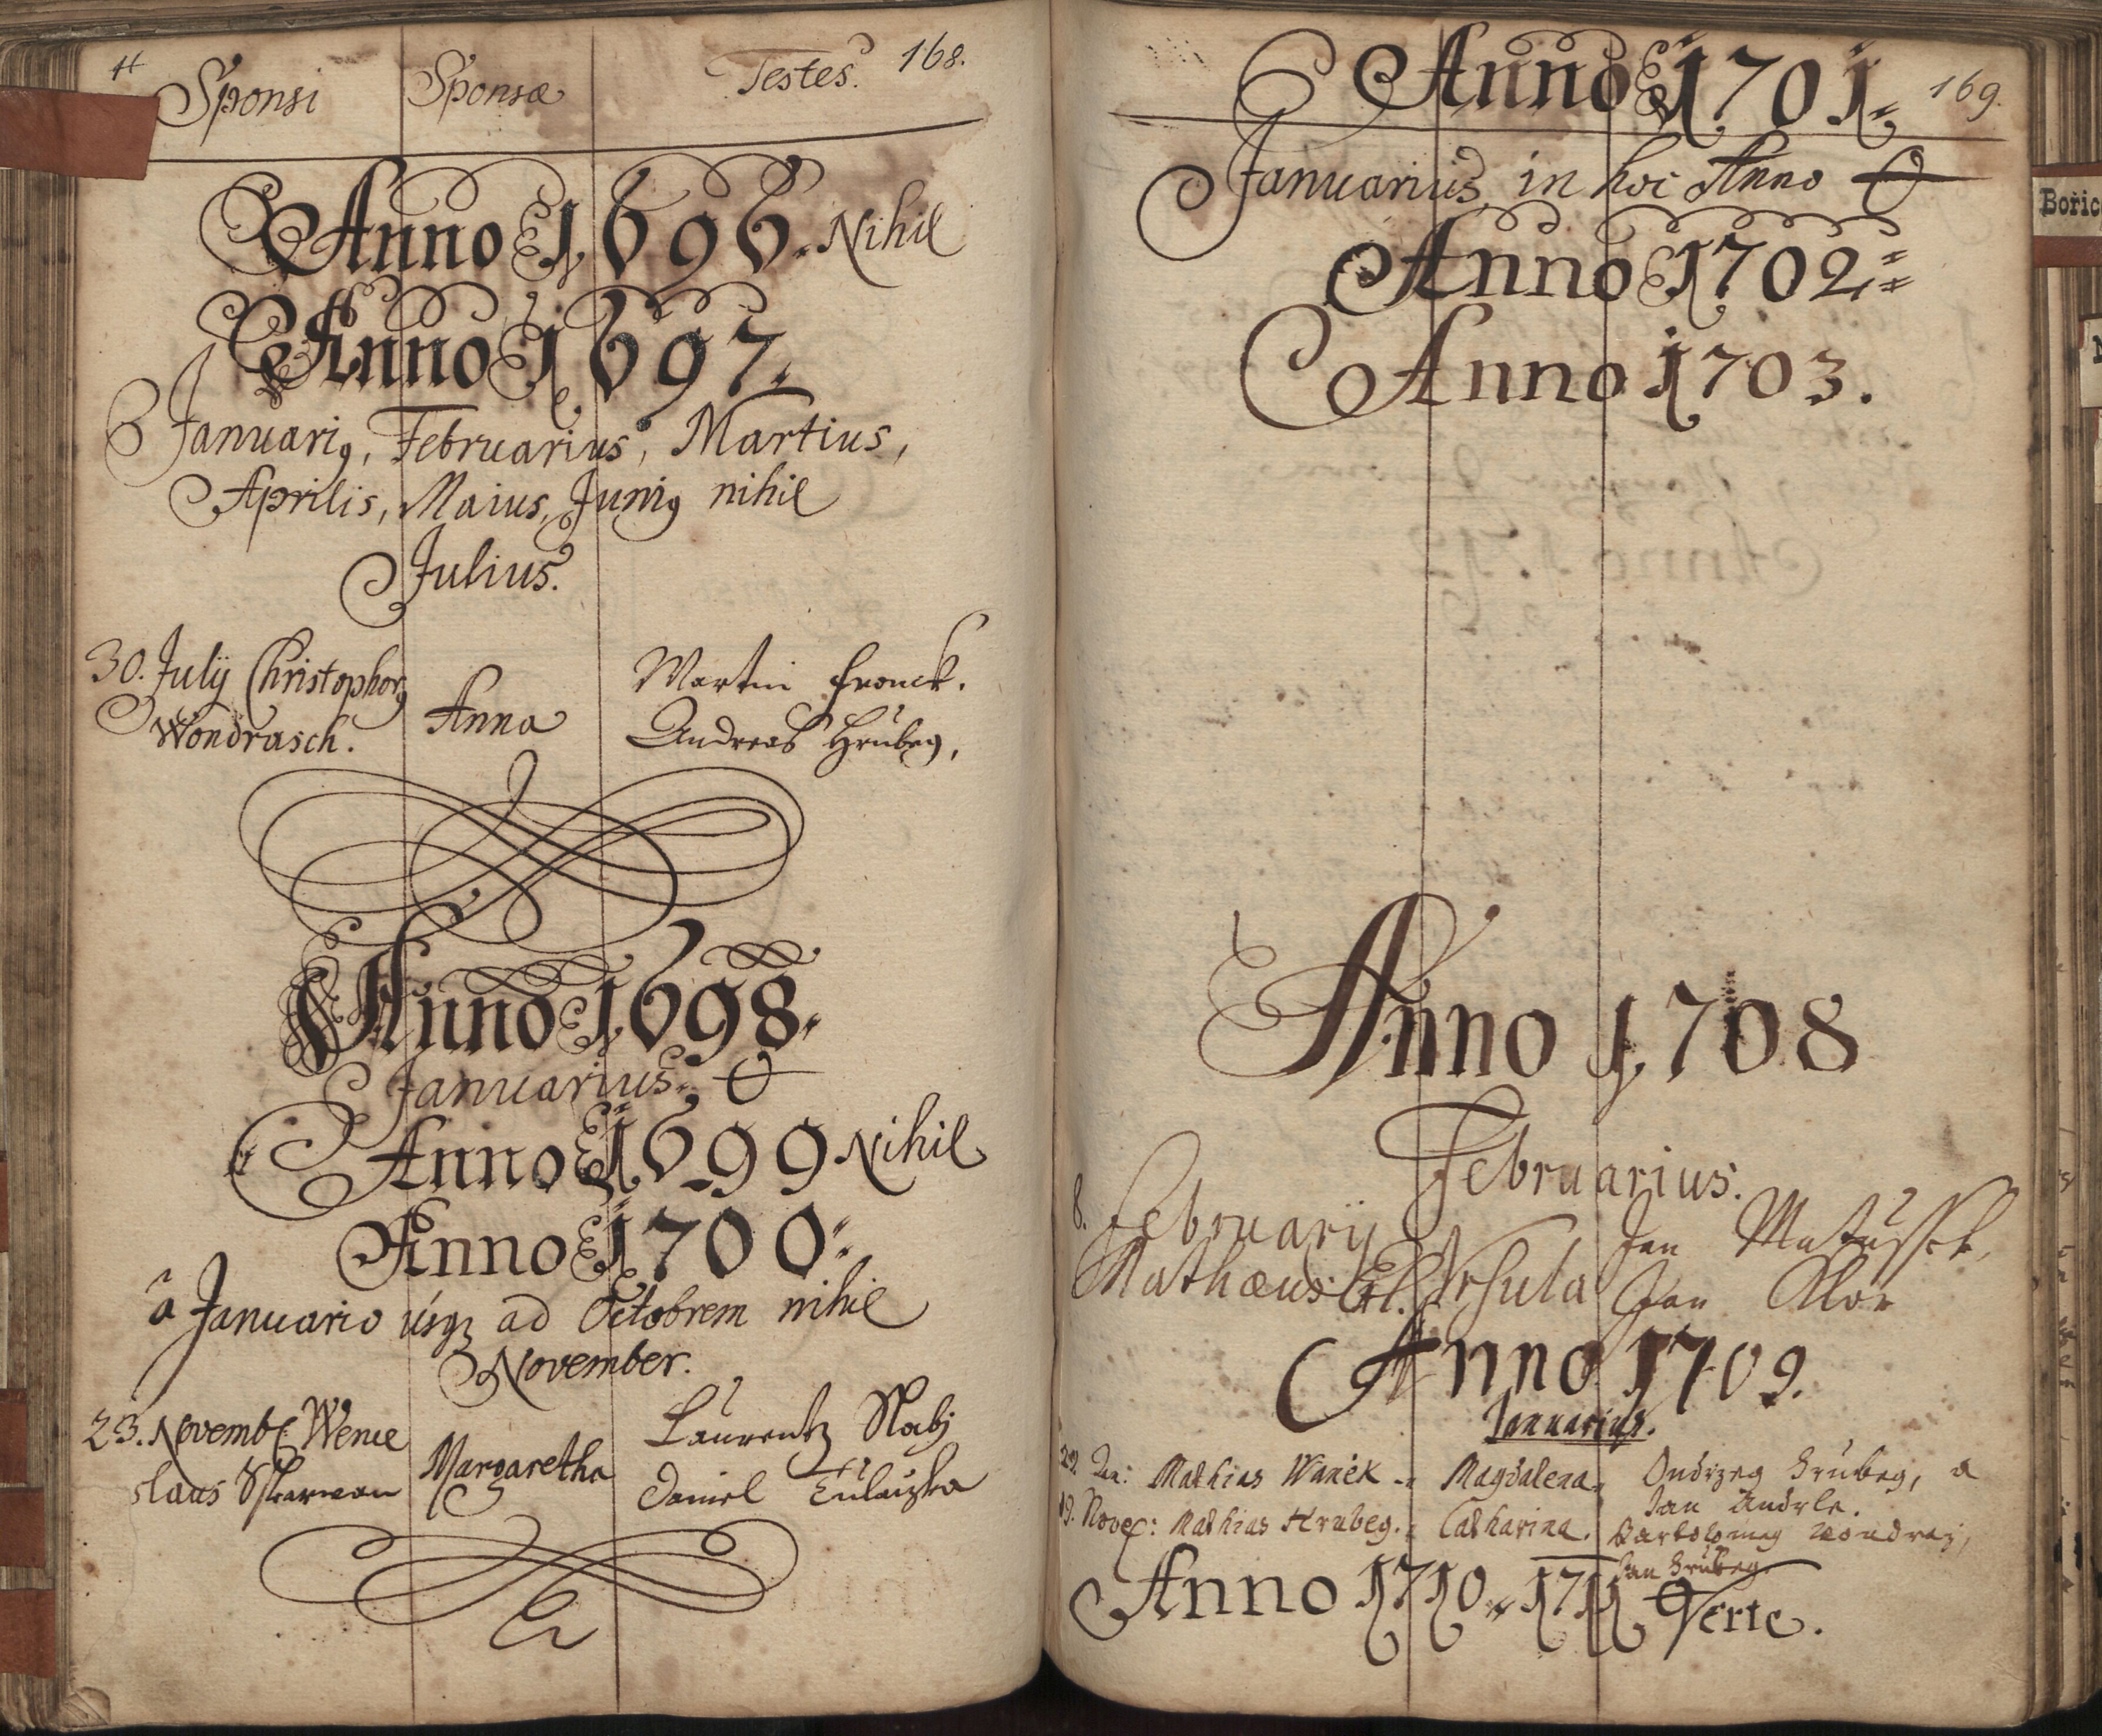 Sponsi Sponsæ Testes. 168.
Anno 1696. Nihil
Anno 1697.
Januariꝰ, Februarius, Martius,
Aprilis, Maius, Juniꝰ nihil
Julius.
30. Julij Christophorꝰ Anna Martin Fronck.
Wondrasch. Andreas Hrubeg,
Anno 1698.
Januarius. O
Anno 1699 Nihil
Anno 1700.
à Januario úsqꝫ ad Octobrem nihil
November.
23. Novemb: Wence Margaretha Laurentz Slabj
slaus Daniel
Anno 1701. 169.
Januarius, in hoc Anno O
Anno 1702
Anno 1703.
Anno 1708
Februarius.
8. Februarij Jan Matussek,
Mathæus Ursula Jan
Anno 1709.
Januarius.
Jan: Mathias Wanék Magdalena, Ondrzeg Hrubeg, a
Jan Andrle.
19. Novem: Mathias Hrubeg. Catharina. Bartolomeg Wondraz,
Jan Hrubeg
Anno 1710. 1711 Verte.
Bořic